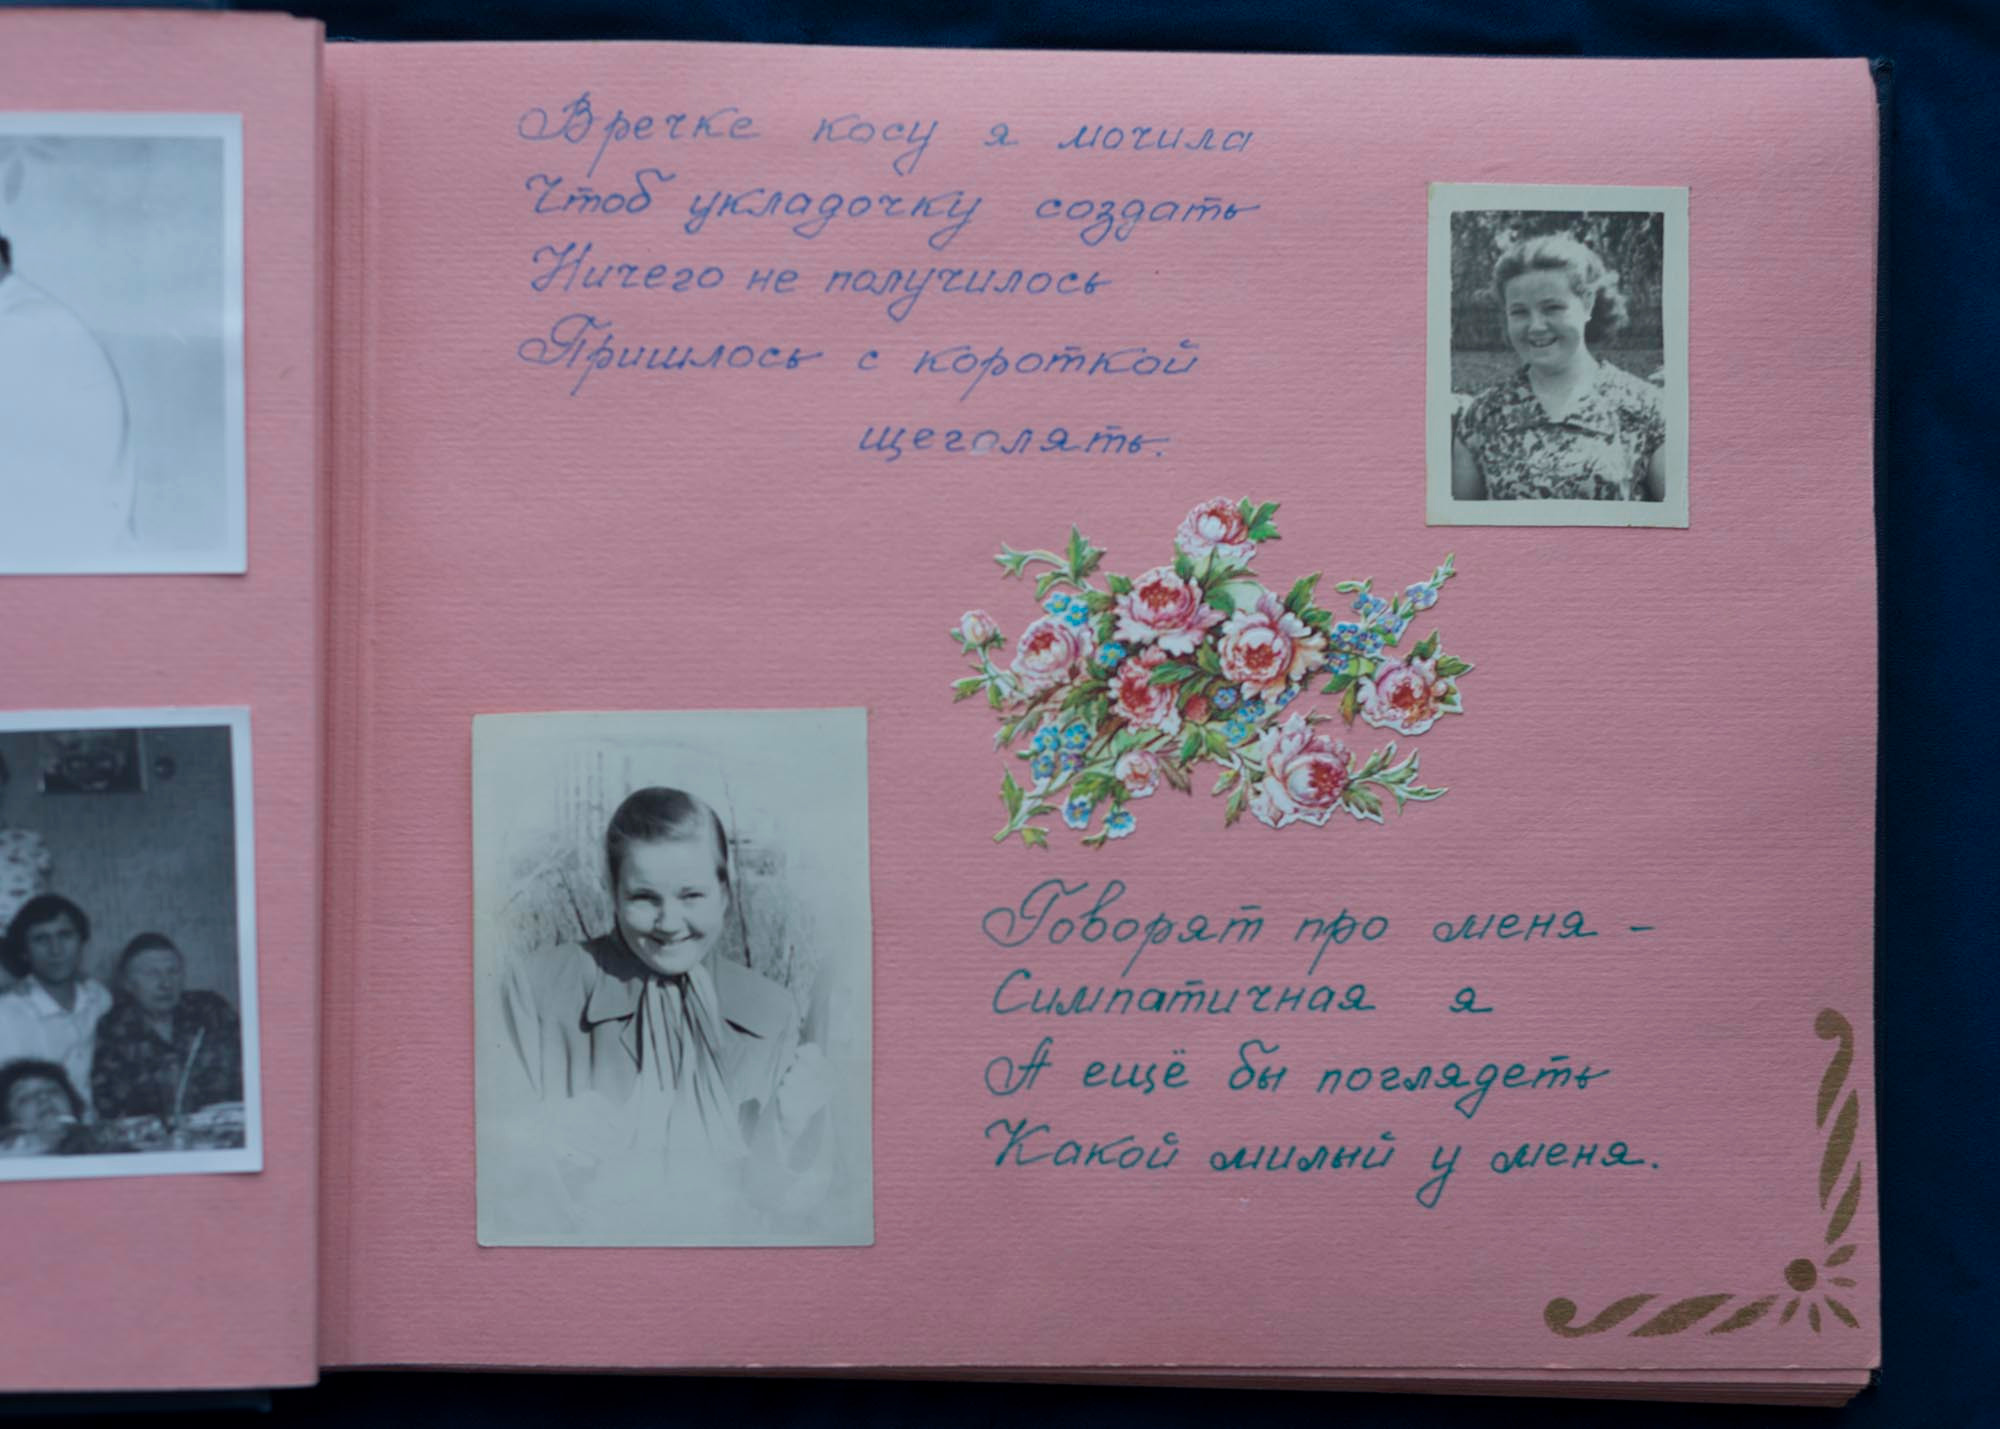 В речке косу я мочила
Чтоб укладочку создать
Ничего не получилось
Пришлось с короткой
щеголять.
Говорят про меня –
Симпатичная я
А ещё бы поглядеть
Какой милый у меня.